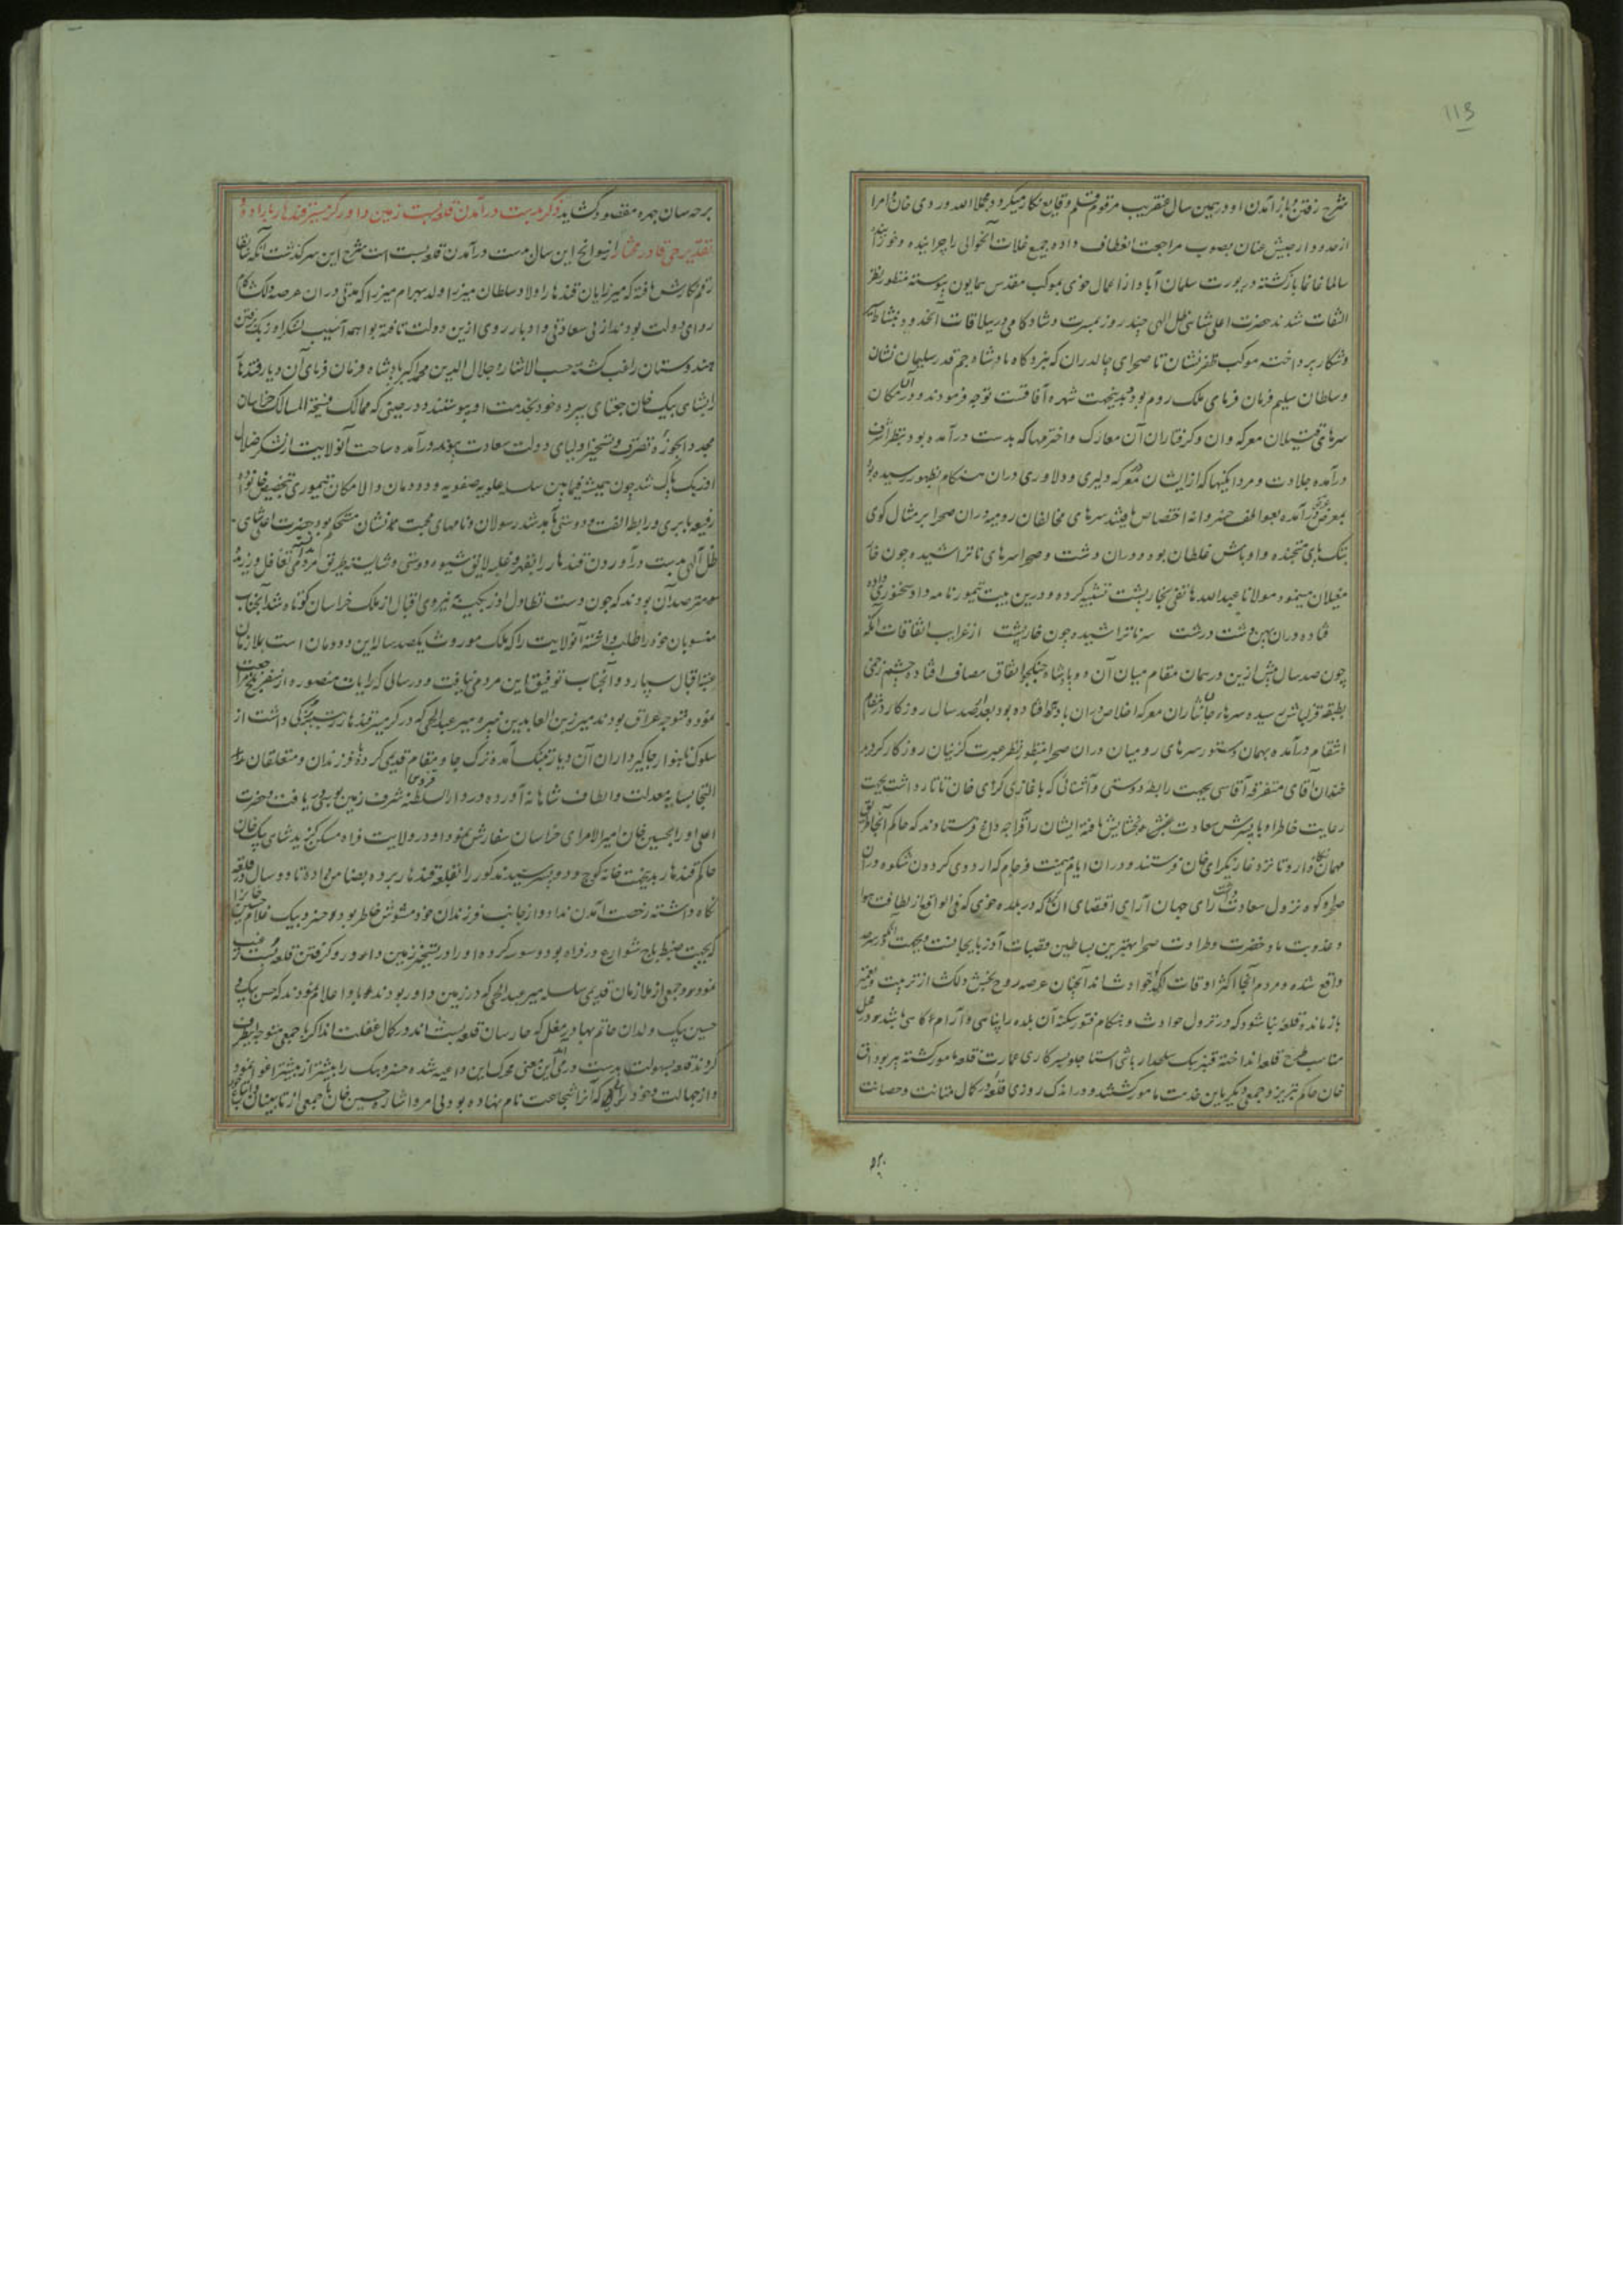 113
شرح رفتن و باز آمدن او در همین سال عنقریب مرقوم قلم وقایع نگار میگردد مجملا الله وردی خان و امرا
از حدود ارجیش عنان بصوب مراجعت انعطاف داده جمیع غلات آنحوالی را چرانیده و خورانیده
سالما غانما بازگشته در یورت سلمان آباد از اعمال خوی بموکب مقدس همایون پیوسته منظور نظر
التفات شدند حضرت اعلی شاهی ظل الهی چند روز بمسرت و شادکامی در ییلاقات آنحدود بنشاط
و شکار پرداخته موکب ظفرنشان تا صحرای چالدران که نبردگاه پادشاه جم قدر سلیمان نشان
و سلطان سلیم فرمان فرمای ملک روم بود و بدینجهت شهره آفاقست توجه فرمودند و در آن مکان
سرهای قتیلان معرکه وان و گرفتاران آن معارک و اخترمها که بدست درآمده بود بنظر اشرف
درآمده جلادت و مردانگیها که از ایشان در معرکه دلیری و دلاوری در آن هنگام بظهور رسیده بود
بمعرض عرض درآمده بعواطف خسروانه اختصاص یافتند سرهای مخالفان رومیه در آن صحرا بر مثال گوی
غلطان بود و در آن دشت و صحرا سرهای ناتراشیده چون خار
مغیلان مینمود مولانا عبدالله هاتفی بخارپشت تشبیه کرده و درین بیت تیمورنامه داد سخنوری داده
فتاده در آن پهن دشت درشت سر ناتراشیده چون خارپشت از غرایب اتفاقات آنکه
چون صد سال پیش ازین در همان مقام میان آن دو پادشاه جنگجو اتفاق مصاف افتاد چشم زخمی
بطبقه قزلباش رسیده سرها جانثاران معرکه اخلاص در آن بادیه افتاده بود بعد از صد سال روزگار در مقام
انتقام درآمده بهمان دستور سرهای رومیان در آن صحرا منظور نظر عبرت گزینان روزگار گردید
خندان آقای متفرقه آقاسی بجهت رابطه دوستی و آشنائی که با غازی گرای خان تاتار داشت بجهت
رعایت خاطر او با پسرش سعادت بخشایش یافته ایشان را فرستادند که حاکم آنجا بطریق
مهمان نگاه دارد تا نزد غازی گرای خان فرستند و در آن ایام میمنت فرجام که اردوی گردون شکوه در آن
صحرا و کوه نزول سعادت داشت رای جهان آرای اقتضای آن کرد که در بلده خوی که فی الواقع از لطافت هوا
و عذوبت ماء و خضرت و طراوت صحرا بهترین بساطین و قصبات آذربایجانست و بجهت آنکه در سرحد
واقع شده و مردم آنجا اکثر اوقات حوادث اند آنچنان عرصه روح بخش دلکش از تربیت و تعمیر
بازمانده قلعه بنا شود که در نزول حوادث و هنگام فتور سکنه آن بلده را پناهی و آرامگاهی باشد و در محل
مناسب طرح قلعه انداخته قنبر بیک سلحدار باشی استاجلو بسرکاری عمارت قلعه مامور گشته پیر بوداق
خان حاکم تبریز و جمعی دیگر باین خدمت مامور گشتند و در اندک روزی قلعه در کمال متانت و حصانت
بر حد سامان چهره مقصود گشاید ذکر بدست درآمدن قلعه بست زمین داور گرمسیر قندهار باراده و
تقدیر حی قادر مختار از سوانح این سال بدست درآمدن قلعه بست است شرح این سرگذشت آنکه سابقا
رقم نگارش یافته که میرزایان قندهار اولاد سلطان حسین میرزا ولد بهرام میرزا که مدتی در آن عرصه دلگشا کام
روای دولت بودند از بی سعادتی و ادبار روی ازین دولت تافته بواهمه آسیب لشکر اوزبک برفتن
هندوستان راغب گشته حسب الاشاره جلال الدین محمد اکبر پادشاه فرمان فرمای آن دیار قندهار
را بشاهی بیک خان جغتای سپرده خود بخدمت او پیوستند و در حینی که ممالک فسیحة المسالک خراسان
مجددا بحوزه تصرف و تسخیر اولیای دولت سعادت پیوند درآمده ساحت آنولایت از لشکر ضلال
اوزبک پاک شد چون همیشه فیمابین سلسله علویه صفویه و دودمان والامکان تیموری بتخصیص
رفیعه بابری رابطه الفت و دوستی بآمد شد رسولان و نامهای محبت نشان مستحکم بود حضرت اعلی شاهی
ظل الهی بدست درآوردن قندهار را بقهر و غلبه لایق شیوه دوستی و شایسته طریق مردمی تغافل ورزیده
مترصد آن بودند که چون دست تطاول اوزبکیه به نیروی اقبال از ملک خراسان کوتاه شد آنجناب
منسوبان خود را طلب داشته آنولایت را که ملک موروث یکصد ساله این دودمان است بملازمان
عتبه اقبال سپارد و آنجناب توفیق این مردمی نیافت و در سالی که رایات منصوره از سفر بلخ مراجعت
نموده متوجه عراق بودند میرزین العابدین نبیره میر عبدالحی که در گرمسیر قندهار رتبه بزرگی داشت از
سلوک ناهنجار جاگیرداران آن دیار بتنگ آمده ترک جا و مقام قدیمی کرده با فرزندان و متعلقان
التجا بسایه معدلت و الطاف شاهانه آورده در دارالسلطنه قزوین شرف زمین بوسی دریافت و حضرت
اعلی او را بحسین خان امیرالامرای خراسان سفارش نمود او در ولایت فراه مسکن گزید شاهی بیک خان
حاکم قندهار بدینجهت خانه کوچ و دو پسر سید مذکور را بقلعه قندهار برده بضامن نهاده تا دو سال در قلعه
نگاه داشته رخصت آمدن نداد و از جانب فرزندان خود مشوش خاطر بود و خسرو بیک غلام حسین خان
که بجهت ضبط شوارع در فراه بود و سوسه کرده او را در تسخیر زمین داور و گرفتن قلعه بست ترغیب
نموده و جمعی از ملازمان قدیمی سلسله میر عبدالحی که در زمین داور بودند باو اعلام نمودند که حسن بیک و
حسین بیک ولدان حاتم بهادر مغل که حارسان قلعه بست اند در کمال غفلت اند اگر با جمعی متوجه اینطرف
گردند قلعه بسهولت بدست درمی آید این معنی محرک این داعیه شده خسرو بیک را بیشتر از پیشتر اغوا نمود
و از جهالت و خودرایی که آنرا شجاعت نام نهاده بود بی امر و اشاره حسین خان با جمعی از تابینان و اتباع خود